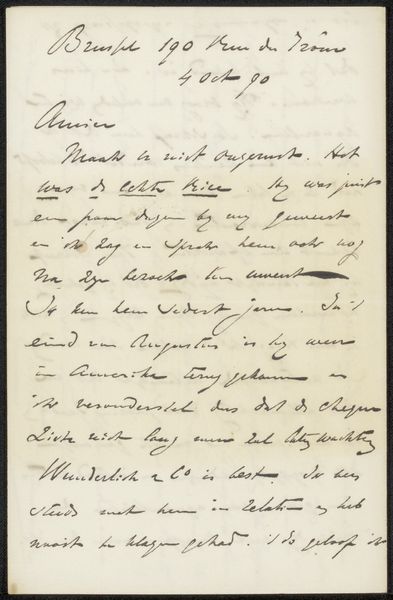 Brussel 190 Rue du Trône
4 Oct 90
Amice
Maak u niet ongerust. Het
was de echte Price. Hy was juist
een paar dagen by my geweest
en ik zag en sprak hem ook nog
na zyn bezoek ten uwent
Ik ken hem sedert jaren. In 't
eind van Augustus is hy weer
in Amerika terug gekomen en
ik veronderstel dus dat de cheque
zich niet lang meer zal laten wachten
Wunderlich & Co is best. Ik ben
steeds met hem in relatie en heb
nooit te klagen gehad. Ik geloof